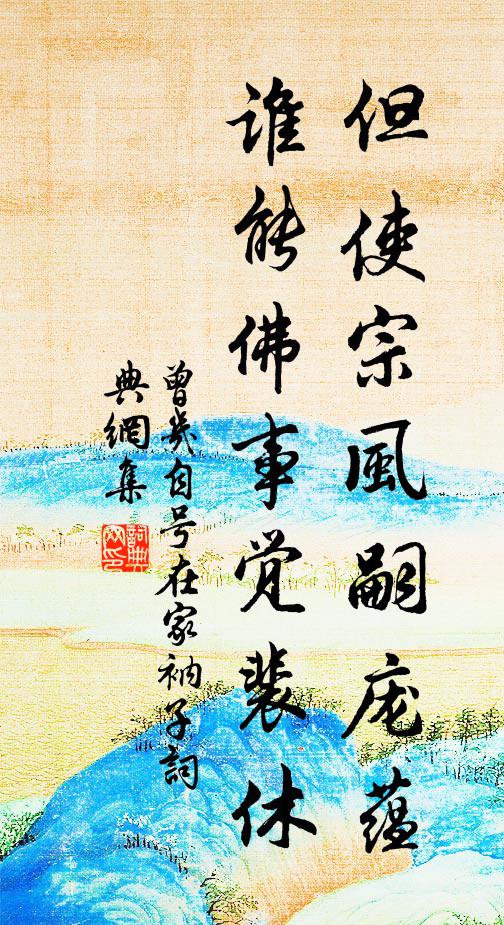 但使宗風嗣庞蕴
谁能佛事觉裴休
曾幾自号在家衲子詞
典網集